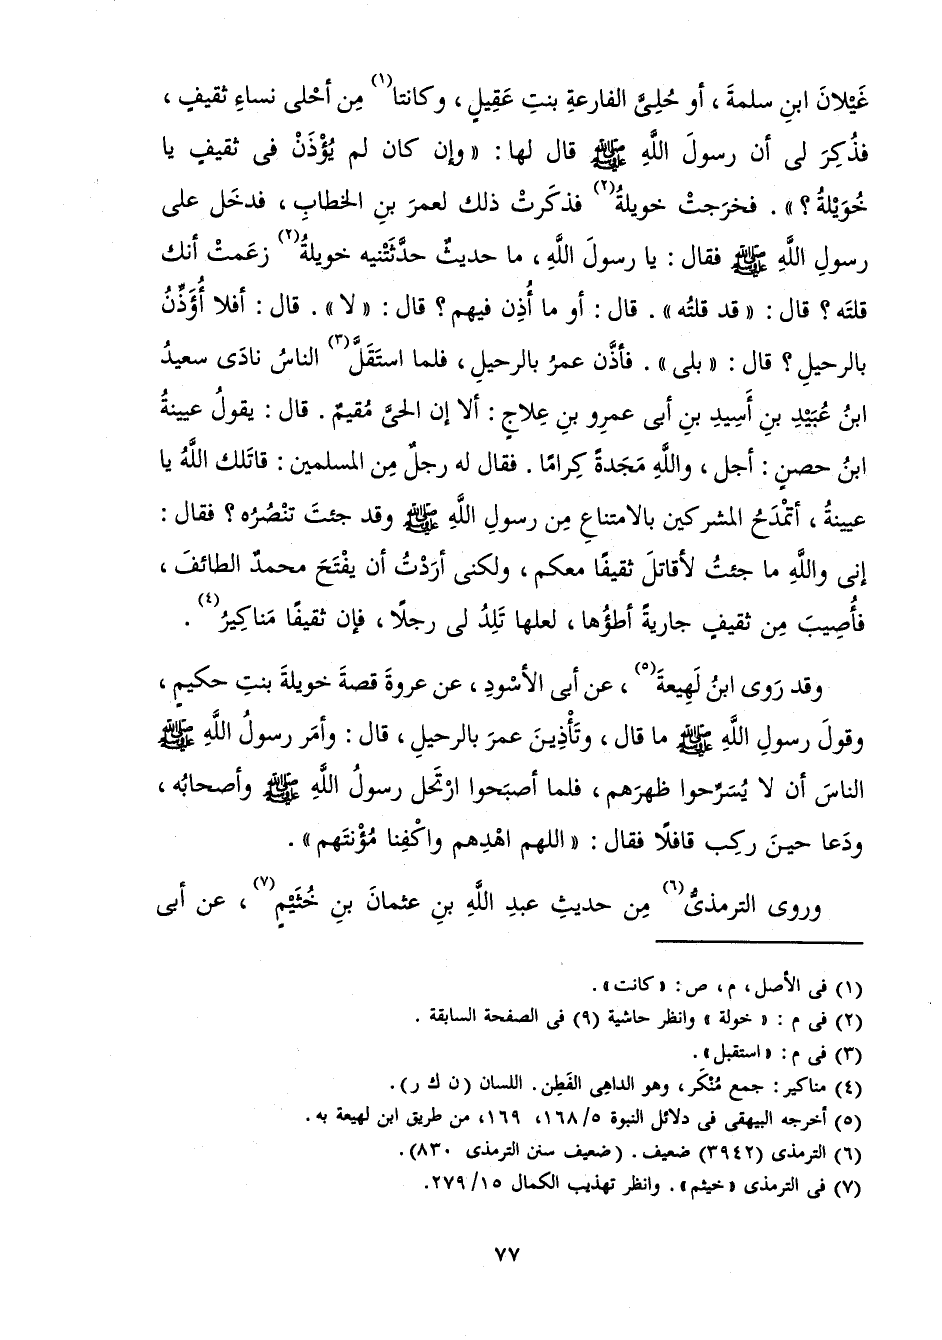 غَيْلانَ ابنِ سلمةَ ، أو حُلِىَّ الفارعةِ بنتِ عَقِيلٍ ، وكانتا(١) مِن أحْلى نساءِ ثقيفٍ ،
فذُكِرَ لى أن رسولَ اللَّهِ ﷺ قال لها : « وإن كان لم يُؤْذَنْ فى ثقيفٍ يا
خُوَيْلةُ ؟ » . فخرَجتْ خويلةُ(٢) فذكَرتْ ذلك لعمرَ بنِ الخطابِ ، فدخَل على
رسولِ اللَّهِ ﷺ فقال : يا رسولَ اللَّهِ ، ما حديثٌ حدَّثَتْنيه خويلةُ(٢) زعَمتْ أنك
قلتَه ؟ قال : « قد قلتُه » . قال : أو ما أُذِن فيهم ؟ قال : « لا » . قال : أفلا أُؤَذِّنُ
بالرحيلِ ؟ قال : « بلى » . فأذَّن عمرُ بالرحيلِ ، فلما استَقَلَّ(٣) الناسُ نادَى سعيدُ
ابنُ عُبَيْدِ بنِ أَسِيدِ بنِ أبى عمرِو بنِ عِلاجٍ : ألا إن الحىَّ مُقيمٌ . قال : يقولُ عيينةُ
ابنُ حصنٍ : أجل ، واللَّهِ مَجَدةً كِرامًا . فقال له رجلٌ مِن المسلمين : قاتَلك اللَّهُ يا
عيينةُ ، أتمْدَحُ المشركين بالامتناعِ مِن رسولِ اللَّهِ ﷺ وقد جئتَ تنْصُرُه ؟ فقال :
إنى واللَّهِ ما جئتُ لأقاتلَ ثقيفًا معكم ، ولكنى أرَدْتُ أن يفْتَحَ محمدٌ الطائفَ ،
فأُصِيبَ مِن ثقيفٍ جاريةً أطؤُها ، لعلها تَلِدُ لى رجلًا ، فإن ثقيفًا مَناكِيرُ(٤) .
وقد رَوى ابنُ لَهِيعةَ(٥) ، عن أبى الأسْودِ ، عن عروةَ قصةَ خويلةَ بنتِ حكيمٍ ،
وقولَ رسولِ اللَّهِ ﷺ ما قال ، وتَأْذِينَ عمرَ بالرحيلِ ، قال : وأمَر رسولُ اللَّهِ ﷺ
الناسَ أن لا يُسَرِّحوا ظهرَهم ، فلما أصبَحوا ارْتَحل رسولُ اللَّهِ ﷺ وأصحابُه ،
ودَعا حينَ ركِب قافلًا فقال : « اللهم اهْدِهم واكْفِنا مُؤْنتَهم » .
وروى الترمذىُّ(٦) مِن حديثِ عبدِ اللَّهِ بنِ عثمانَ بنِ خُثَيْمٍ(٧) ، عن أبى
(١) فى الأصل ، م ، ص : « كانت » .
(٢) فى م : « خولة » وانظر حاشية (٩) فى الصفحة السابقة .
(٣) فى م : « استقبل » .
(٤) مناكير : جمع مُنْكَر ، وهو الداهى الفَطِن . اللسان (ن ك ر) .
(٥) أخرجه البيهقى فى دلائل النبوة ٥/ ١٦٨، ١٦٩، من طريق ابن لهيعة به .
(٦) الترمذى (٣٩٤٢) ضعيف . (ضعيف سنن الترمذى ٨٣٠) .
(٧) فى الترمذى « خيثم » . وانظر تهذيب الكمال ١٥/ ٢٧٩.
٧٧